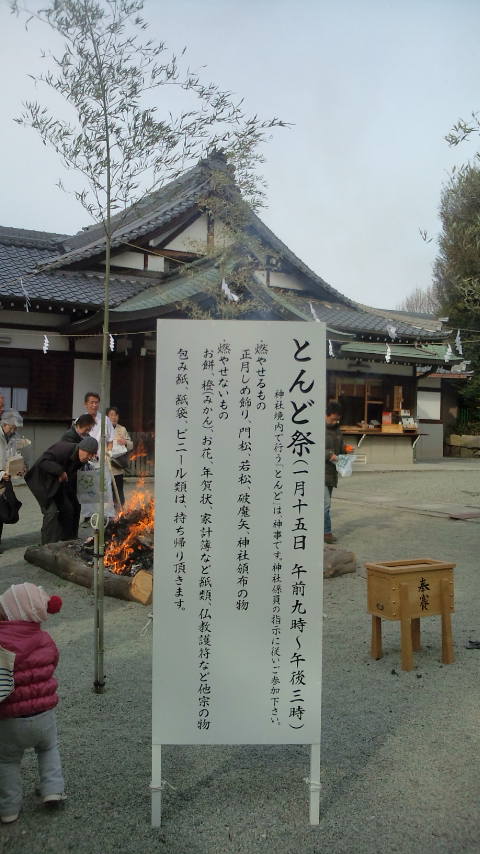 とんど祭(一月十五日 午前九時〜午後三時)
神社境内で行う「とんど」は、神事です。神社係員の指示に従いご参加下さい。
燃やせるもの
正月しめ飾り、門松、若松、破魔矢、神社頒布の物
燃やせないもの
お餅、橙(みかん)、お花、年賀状、家計簿など紙類、仏教護符など他宗の物
包み紙、紙袋、ビニール類は、持ち帰り頂きます。
奉賽